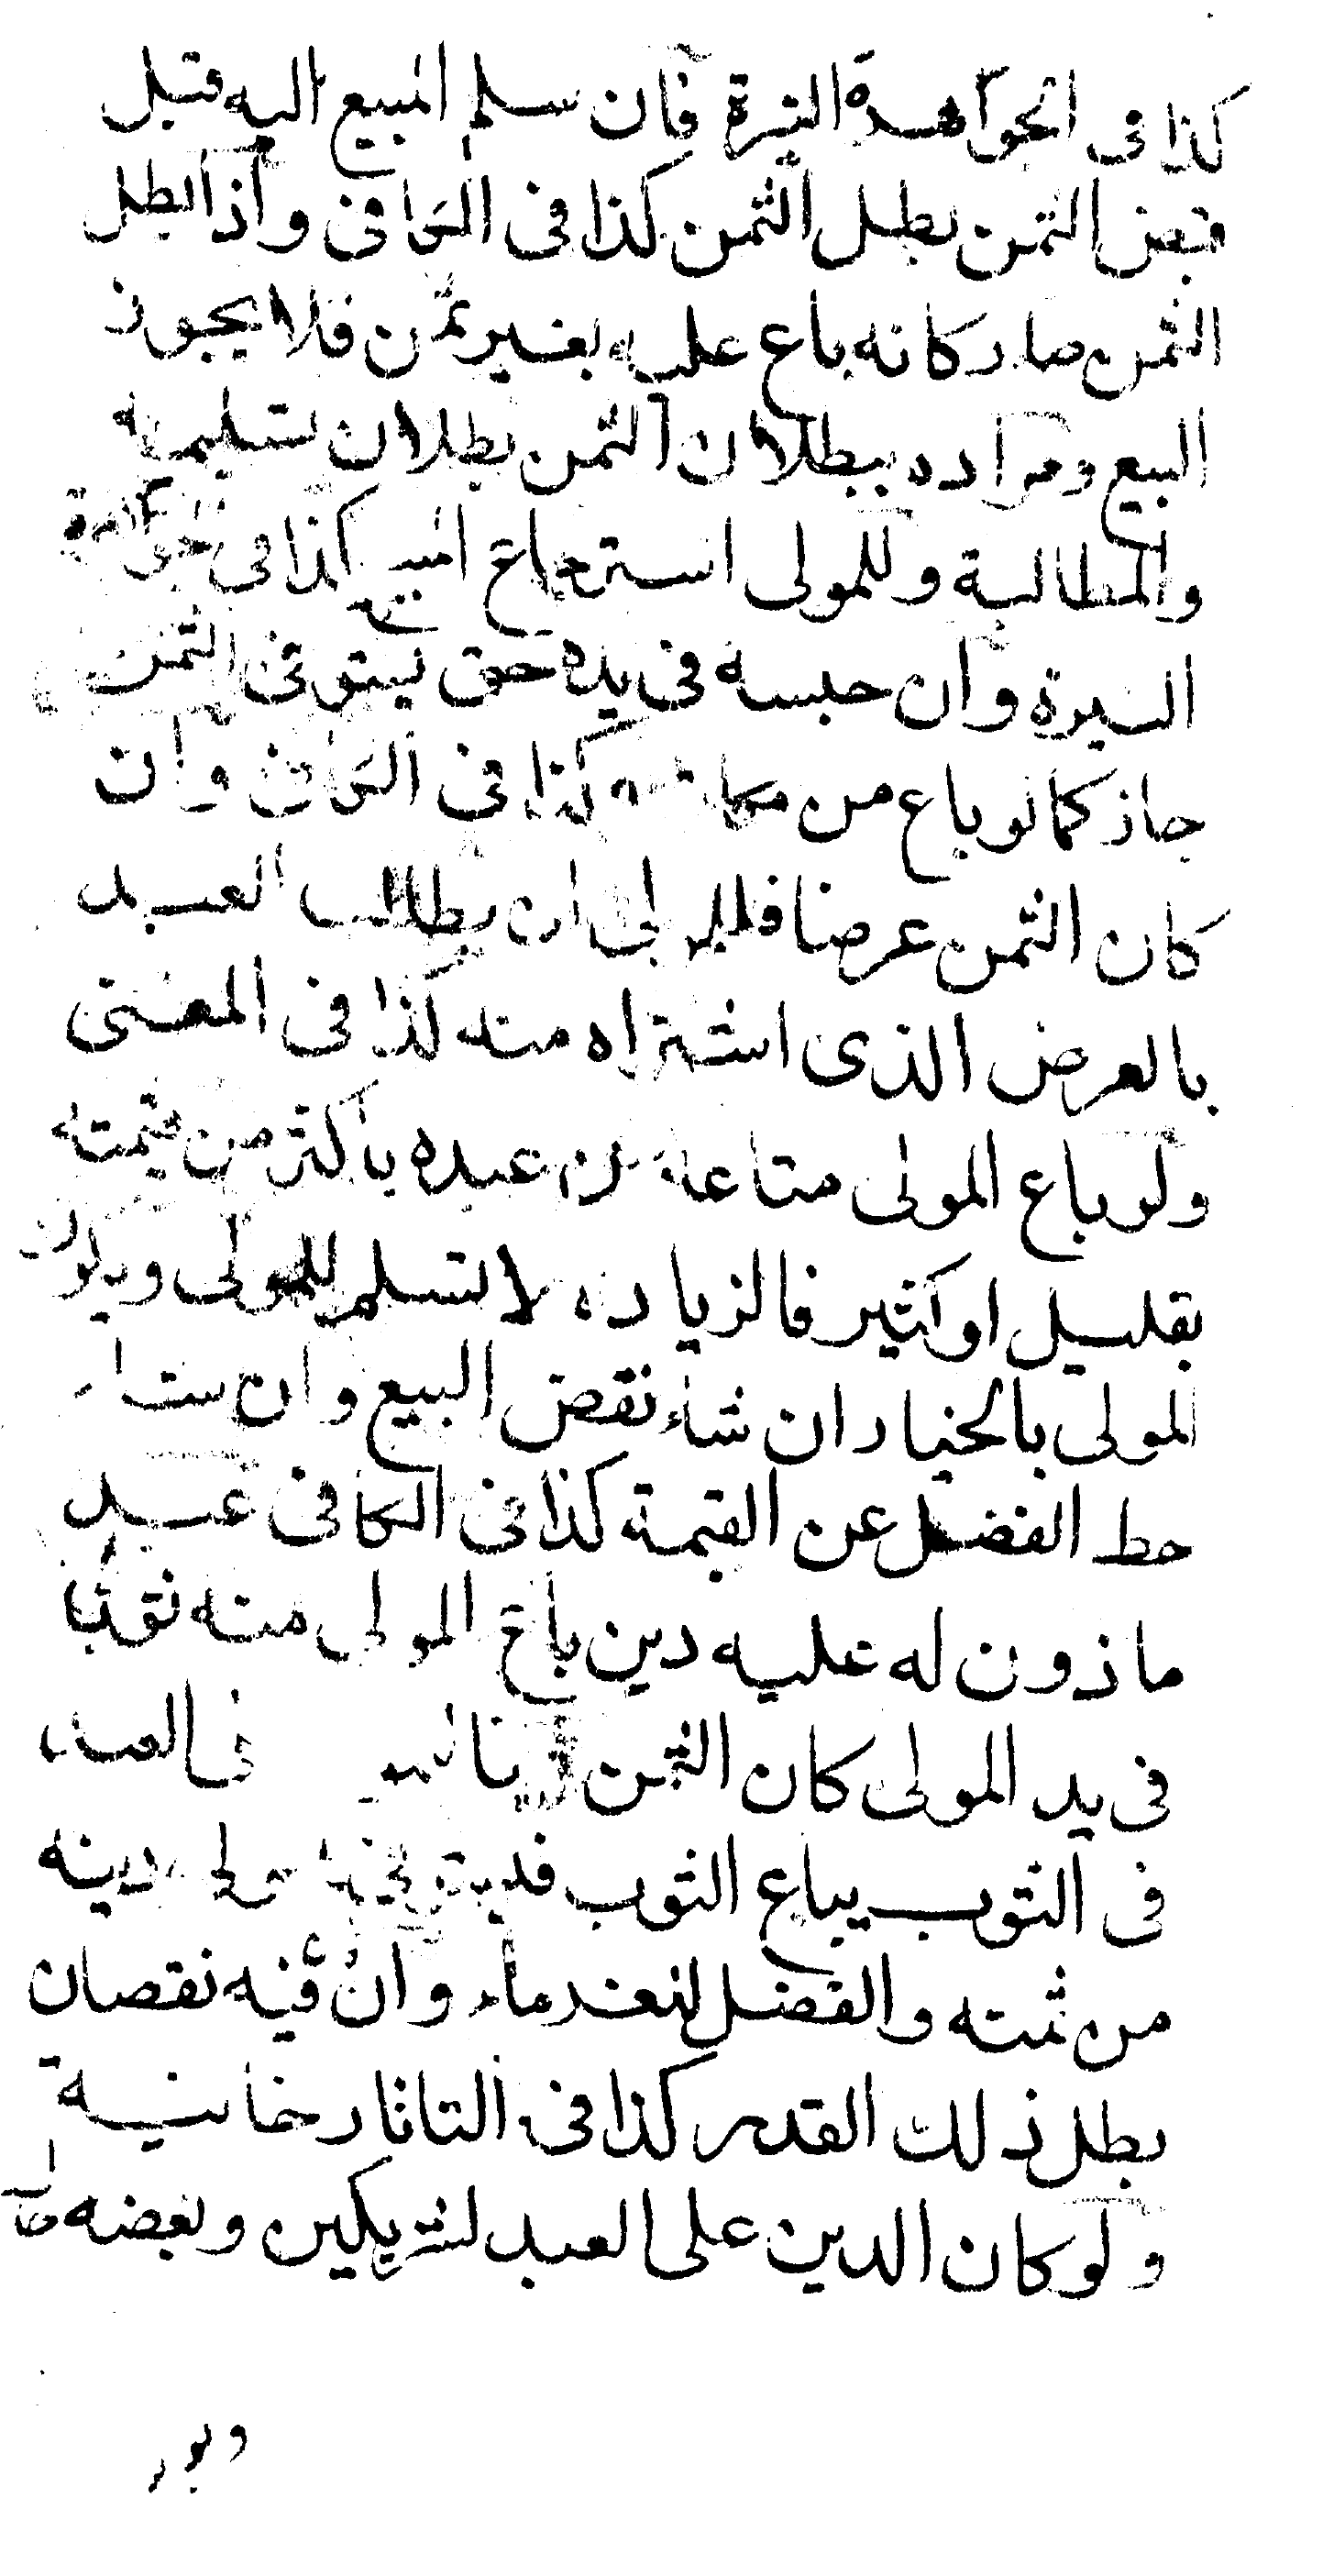 كذا في الجواهرة النيرة فان سلم المبيع اليه قبل
قبض الثمن بطل الثمن كذا في الكافي واذا بطل
الثمن صار كانه باع عليه بغير ثمن فلا يجوز
البيع ومراده ببطلان الثمن بطلان تسليمه
والمطالبة وللمولى استرجاع المبيع كذا في
النيرة وان حبسه في يده حتى يستوفي الثمن
جاز كما لو باع من مكاتبه كذا في الكافي وان
كان الثمن عرضا فللمولى ان يطالب العبد
بالعرض الذي اشتراه منه كذا في المعنى
ولو باع المولى متاعا من عبده باكثر من قيمته
بقليل او كثير فالزياده لا تسلم للمولى ويكون
المولى بالخيار ان شاء نقض البيع وان شاء
حط الفضل عن القيمة كذا في الكافي عبد
ماذون له عليه دين باع المولى منه ثوبا
في يد المولى كان الثمن دينا للمولى في العبد
في الثوب يباع الثوب فيستوفي المولى دينه
من ثمنه والفضل للغرماء وان فيه نقصان
بطل ذلك القدر كذا في التاتارخانية
ولو كان الدين على العبد لشريكين وبعضه حال